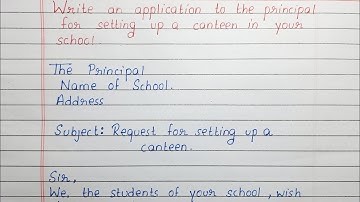 Write an application to the principal
for setting up a canteen in your
school.
The Principal
Name of School.
Address
Subject: Request for setting up a
canteen.
Sir,
We, the students of your school, wish